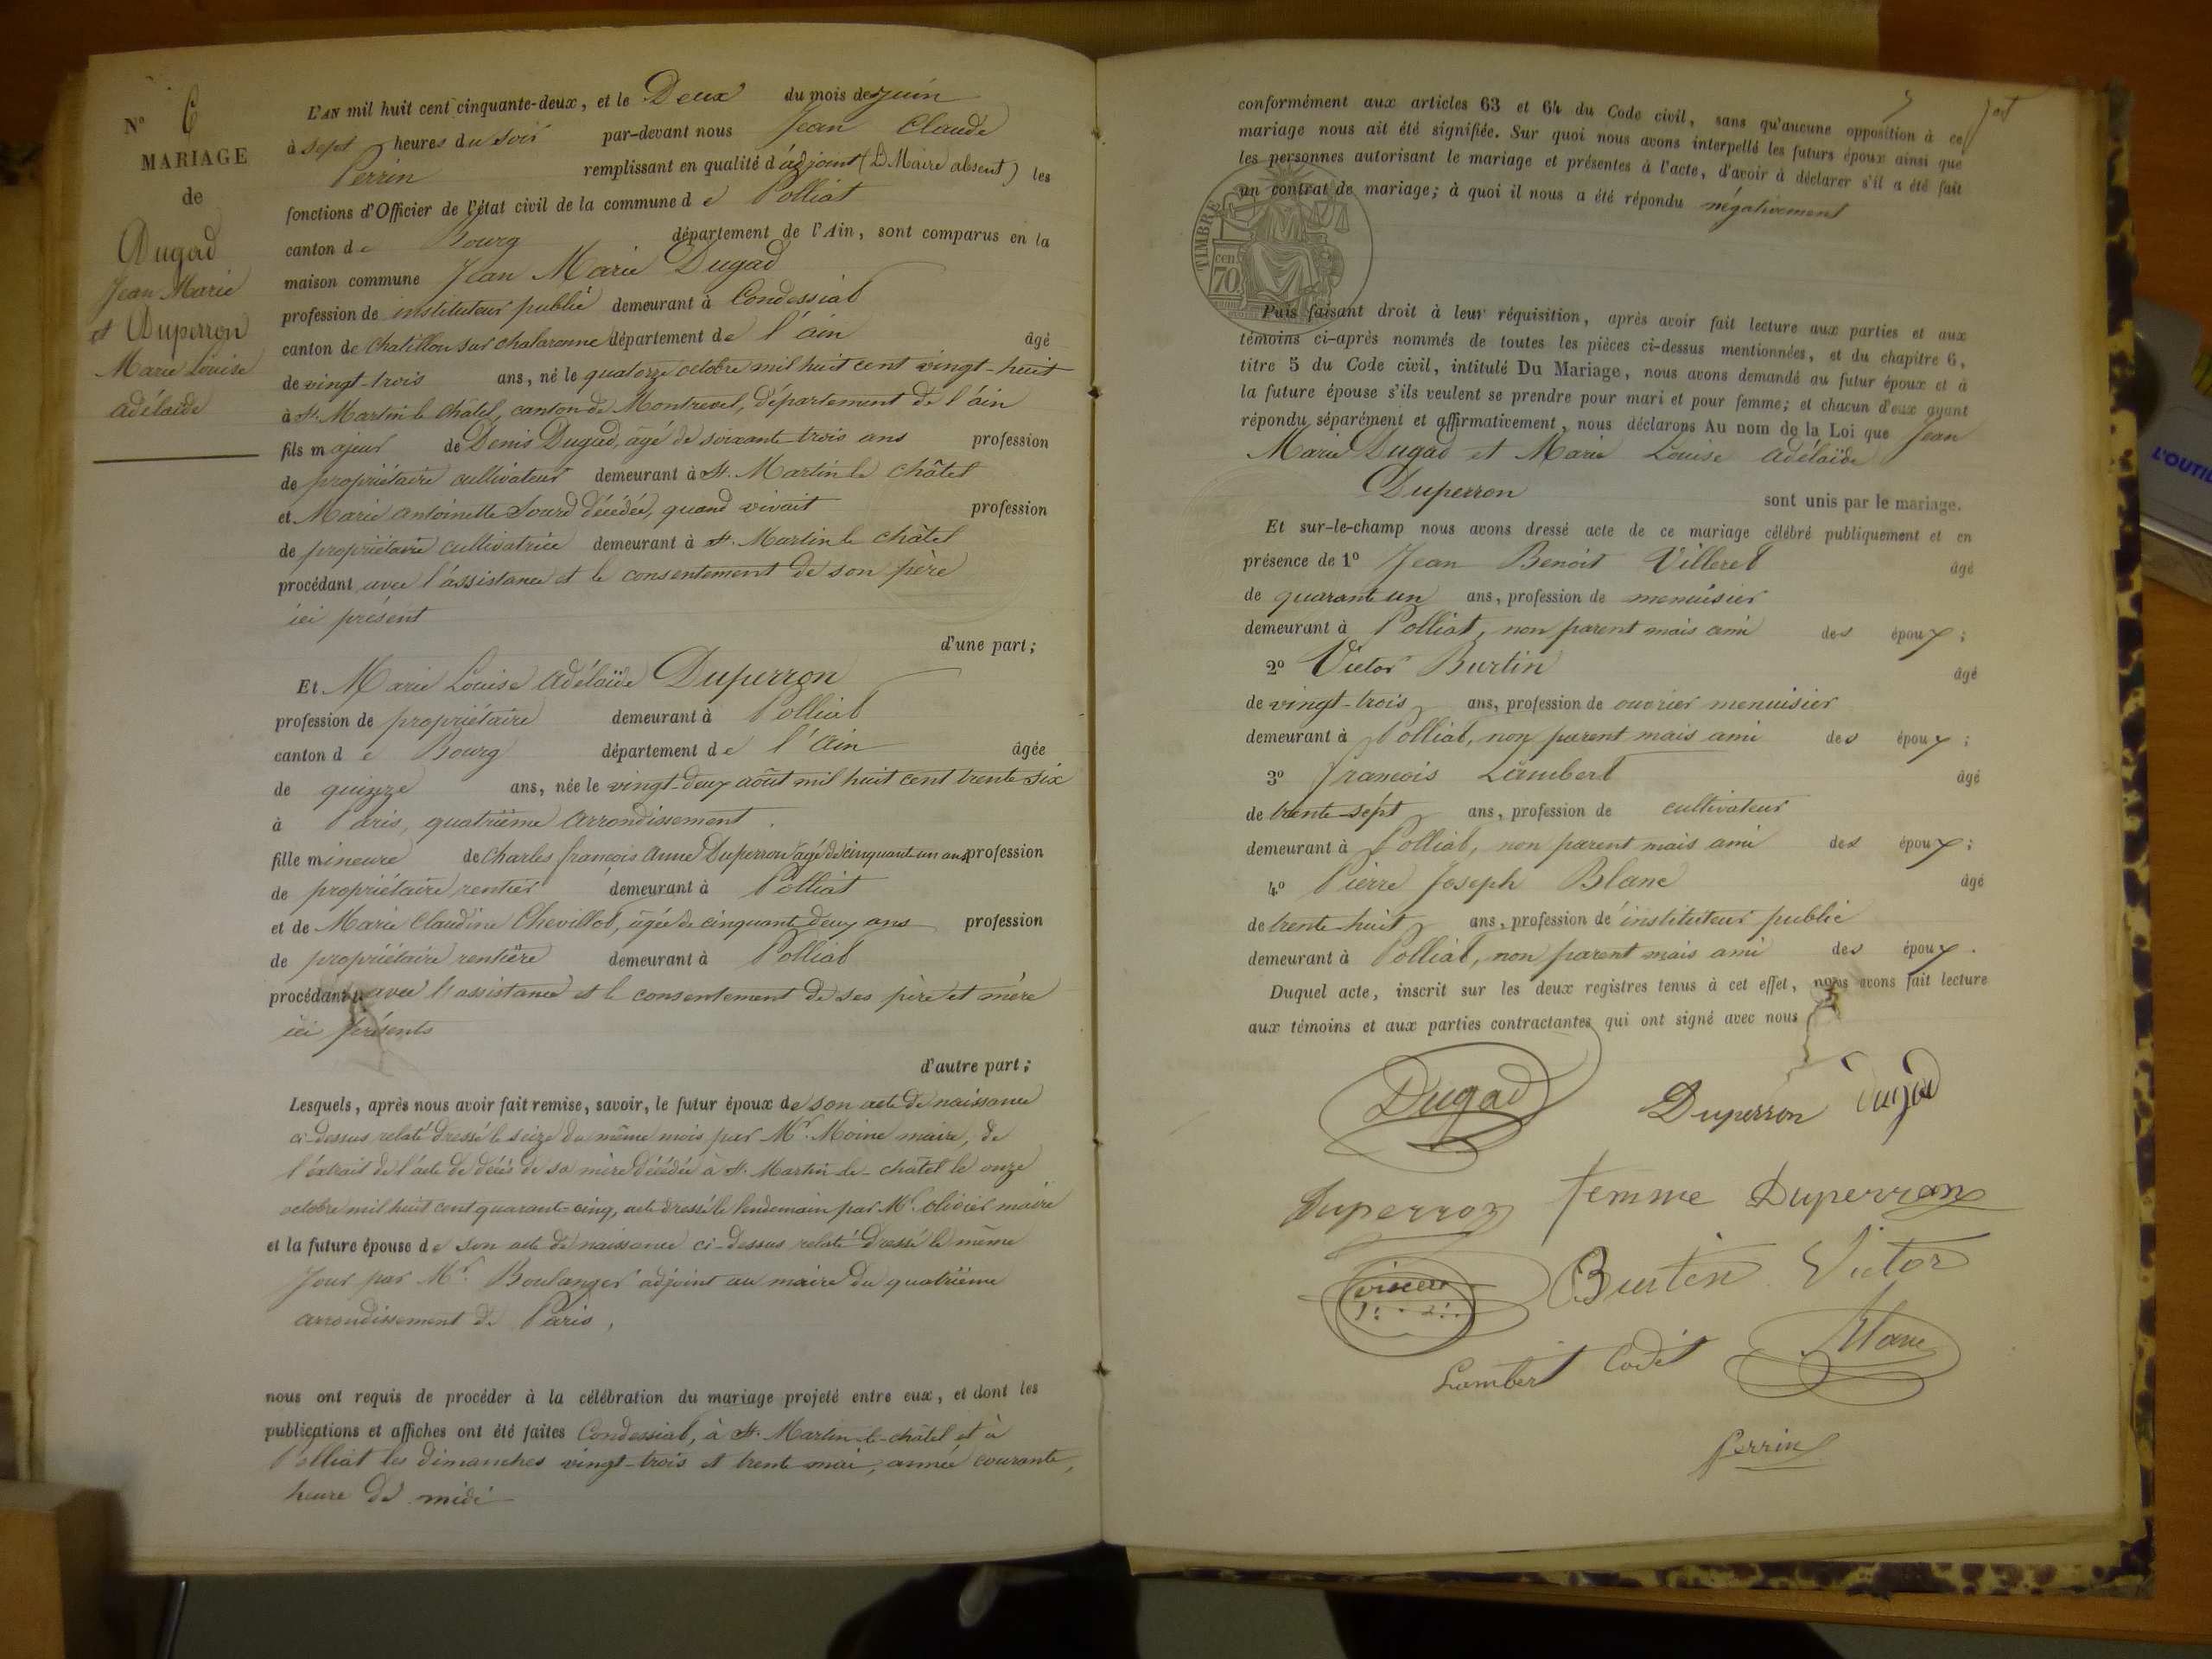 N° 6
MARIAGE
de
Dugad
Jean Marie
et Duperron
Marie Louise
adélaïde
L'AN mil huit cent cinquante-deux, et le Deux du mois de juin
à sept heures du soir par-devant nous Jean Claude
Perrin remplissant en qualité d'adjoint (Le Maire absent) les
fonctions d'Officier de l'état civil de la commune de Polliat
canton de Bourg département de l'Ain, sont comparus en la
maison commune Jean Marie Dugad
profession de instituteur public demeurant à Condessiat
canton de chatillon sur chalaronne département de l'ain âgé
de vingt-trois ans, né le quatorze octobre mil huit cent vingt-huit
à St. Martin le châtel, canton de Montrevel, département de l'ain
fils majeur de Denis Dugad, âgé de soixante-trois ans profession
de propriétaire cultivateur demeurant à St. Martin le châtel
et Marie antoinette Sourd décédée, quand vivait profession
de propriétaire cultivatrice demeurant à St. Martin le châtel
procédant avec l'assistance et le consentement de son père
ici présent
d'une part;
Et Marie Louise adélaïde Duperron
profession de propriétaire demeurant à Polliat
canton de Bourg département de l'ain âgée
de quinze ans, née le vingt-deux août mil huit cent trente six
à Paris, quatrième arrondissement.
fille mineure de Charles françois anne Duperron âgé de cinquant un ans profession
de propriétaire rentier demeurant à Polliat
et de Marie Claudine Chevillot, âgée de cinquant deux ans profession
de propriétaire rentière demeurant à Polliat
procédant avec l'assistance et le consentement de ses père et mère
ici présents
d'autre part;
Lesquels, après nous avoir fait remise, savoir, le futur époux de son acte de naissance
ci-dessus relaté dressé le seize du même mois par Mr. Moine maire, de
l'extrait de l'acte de décès de sa mère décédée à St. Martin-le-châtel le onze
octobre mil huit cent quarante-cinq, acte dressé le lendemain par Mr. Olivier maire
et la future épouse de son acte de naissance ci-dessus relaté dressé le même
Jour par Mr. Boulanger adjoint au maire du quatrième
arrondissement de Paris,
nous ont requis de procéder à la célébration du mariage projeté entre eux, et dont les
publications et affiches ont été faites Condessiat, à St. Martin-le-châtel et à
Polliat les dimanches vingt-trois et trente mai, année courante,
heure de midi
conformément aux articles 63 et 64 du Code civil, sans qu'aucune opposition à ce
mariage nous ait été signifiée. Sur quoi nous avons interpellé les futurs époux ainsi que
les personnes autorisant le mariage et présentes à l'acte, d'avoir à déclarer s'il a été fait
un contrat de mariage; à quoi il nous a été répondu négativement
TIMBRE
cen
70
Puis faisant droit à leur réquisition, après avoir fait lecture aux parties et aux
témoins ci-après nommés de toutes les pièces ci-dessus mentionnées, et du chapitre 6,
titre 5 du Code civil, intitulé Du Mariage, nous avons demandé au futur époux et à
la future épouse s'ils veulent se prendre pour mari et pour femme; et chacun d'eux ayant
répondu séparément et affirmativement, nous déclarons Au nom de la Loi que Jean
Marie Dugad et Marie Louise adélaïde
Duperron sont unis par le mariage.
Et sur-le-champ nous avons dressé acte de ce mariage célébré publiquement et en
présence de 1° Jean Benoit Villeret âgé
de quarant un ans, profession de menuisier
demeurant à Polliat, non parent mais ami des époux;
2° Victor Burtin âgé
de vingt-trois ans, profession de ouvrier menuisier
demeurant à Polliat, non parent mais ami des époux;
3° françois Lambert âgé
de trente-sept ans, profession de cultivateur
demeurant à Polliat, non parent mais ami des époux;
4° Pierre Joseph Blanc âgé
de trente-huit ans, profession de instituteur public
demeurant à Polliat, non parent mais ami des époux.
Duquel acte, inscrit sur les deux registres tenus à cet effet, nous avons fait lecture
aux témoins et aux parties contractantes qui ont signé avec nous
Dugad Duperron Dugad
Duperron femme Duperron
Burtin Victor
Lambert Cadet Blanc
Perrin
L'OUTIL